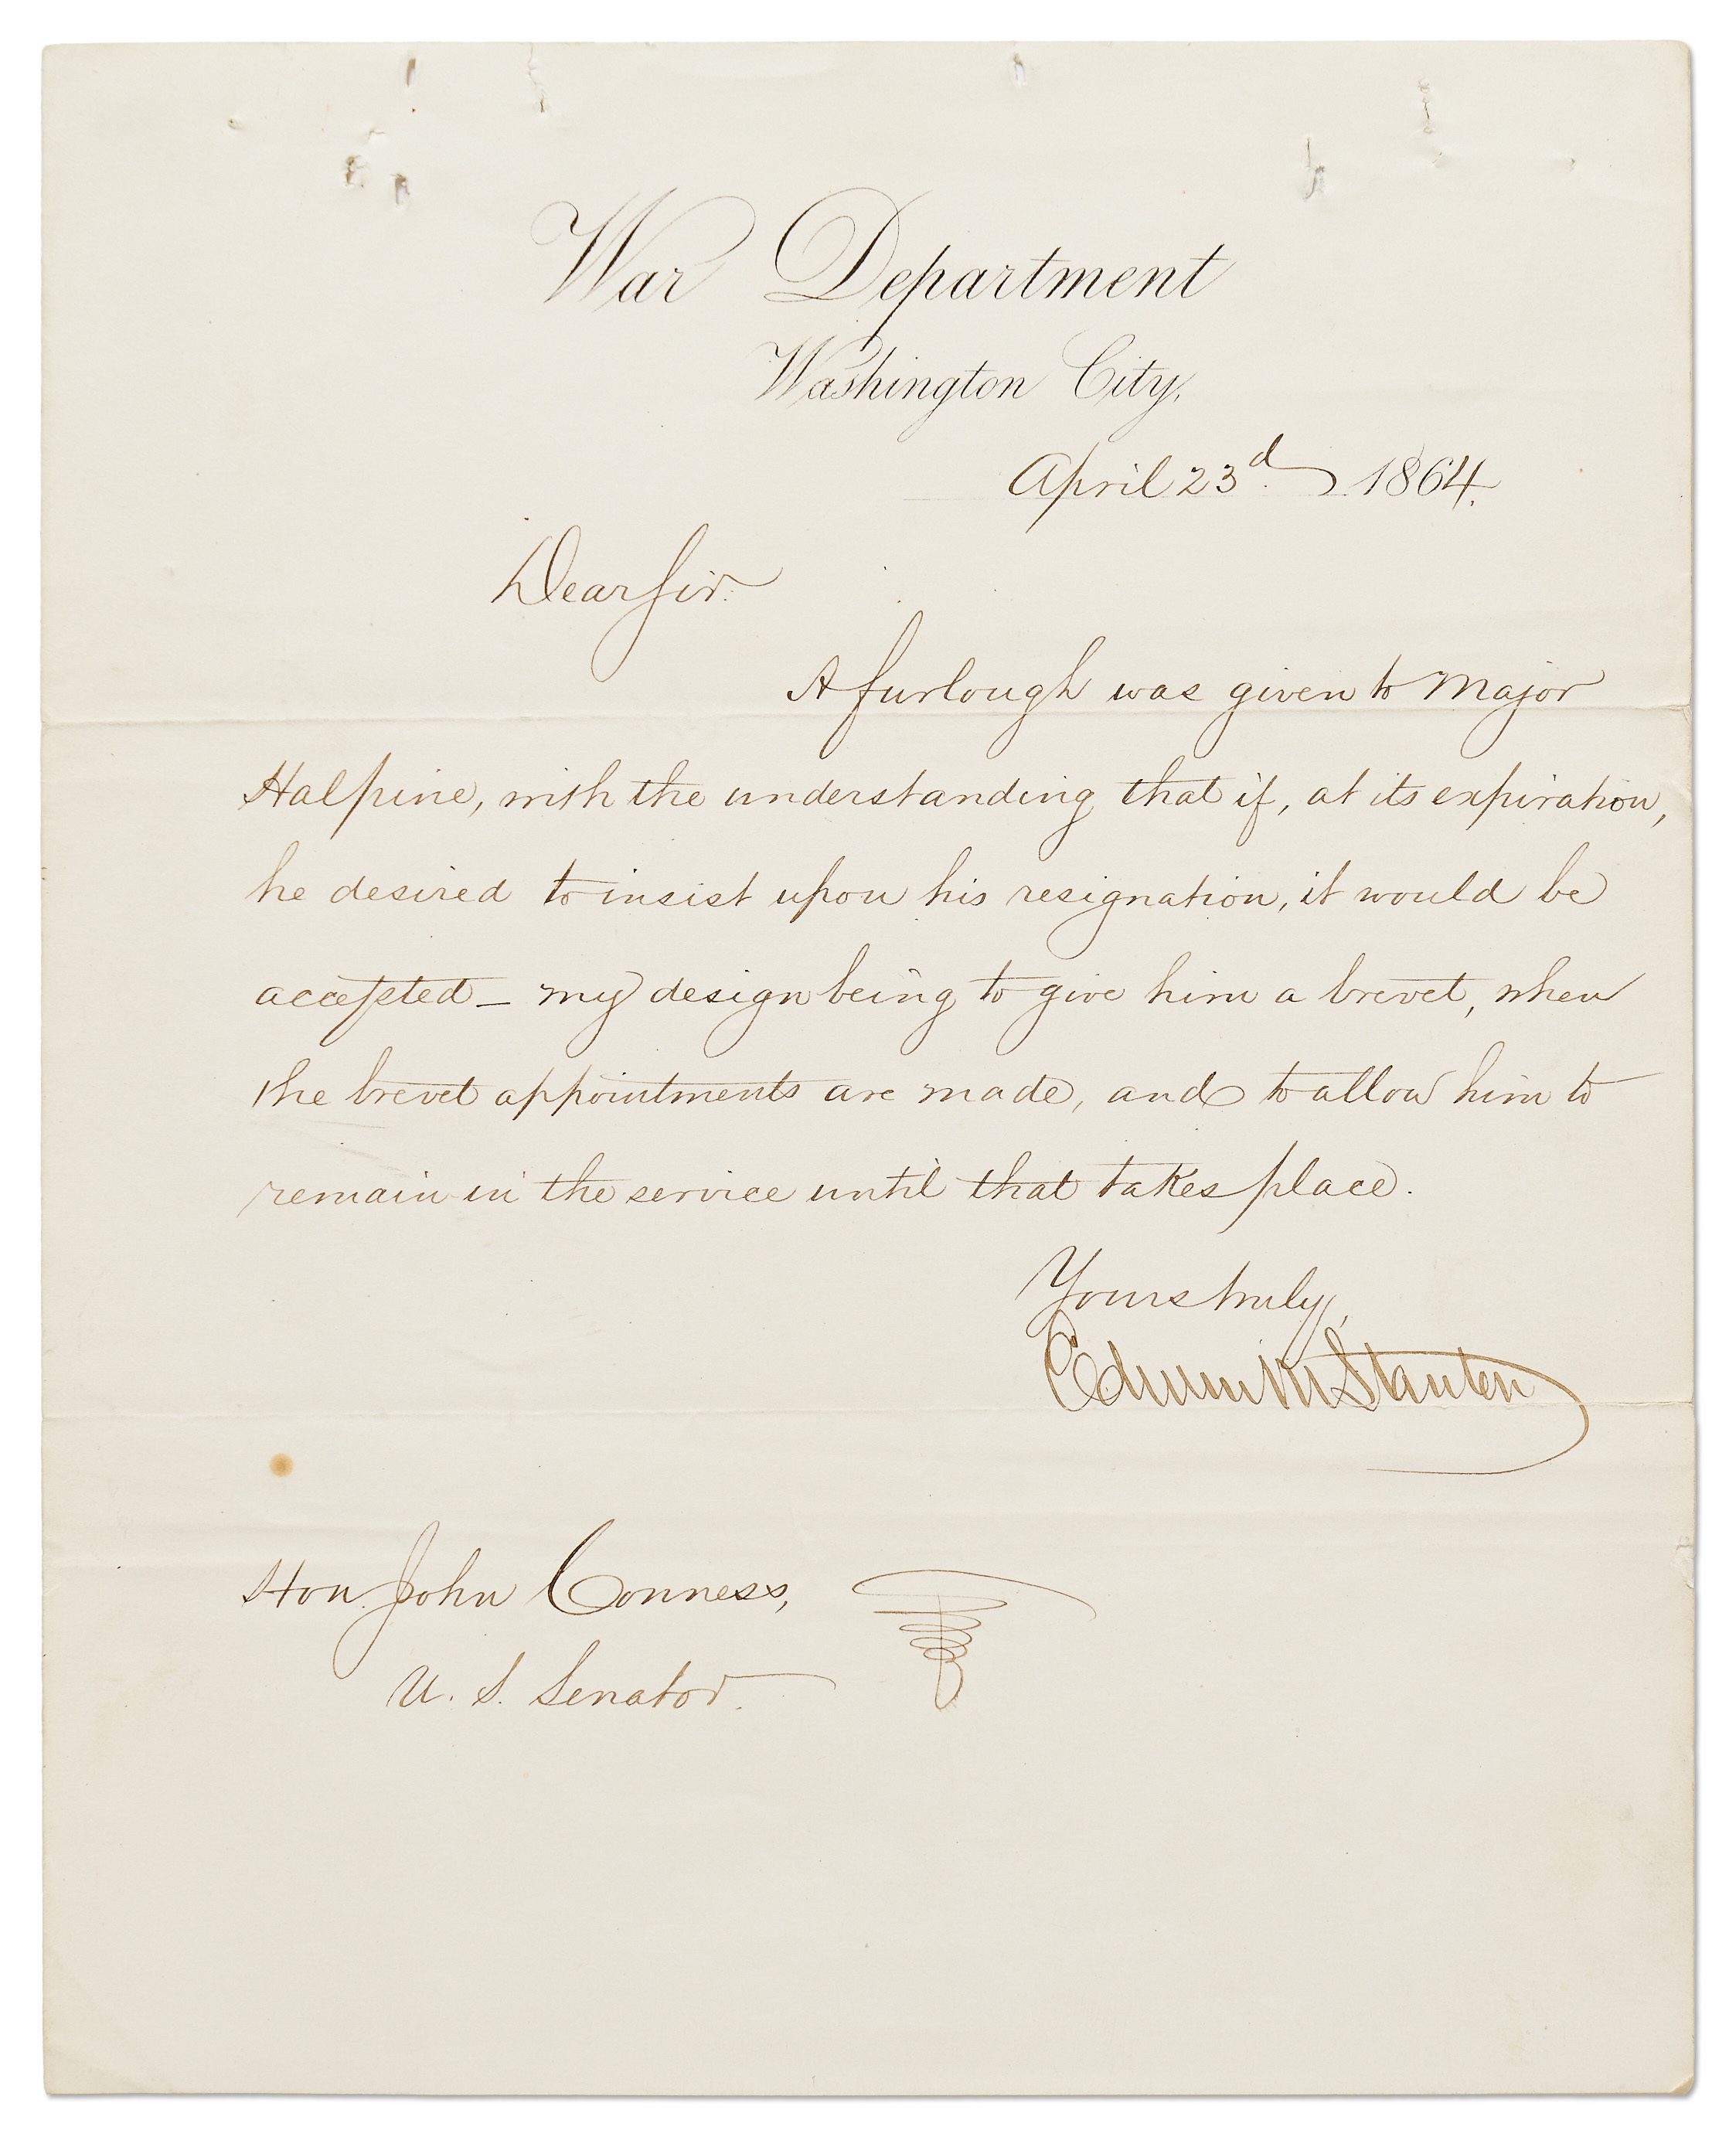 War Department
Washington City,
April 23d. 1864.
Dear Sir:
A furlough was given to Major
Halpine, with the understanding that if, at its expiration,
he desired to insist upon his resignation, it would be
accepted – my design being to give him a brevet, when
the brevet appointments are made, and to allow him to
remain in the service until that takes place.
Yours truly,
Edwin M Stanton
Hon. John Conness,
U. S. Senator.